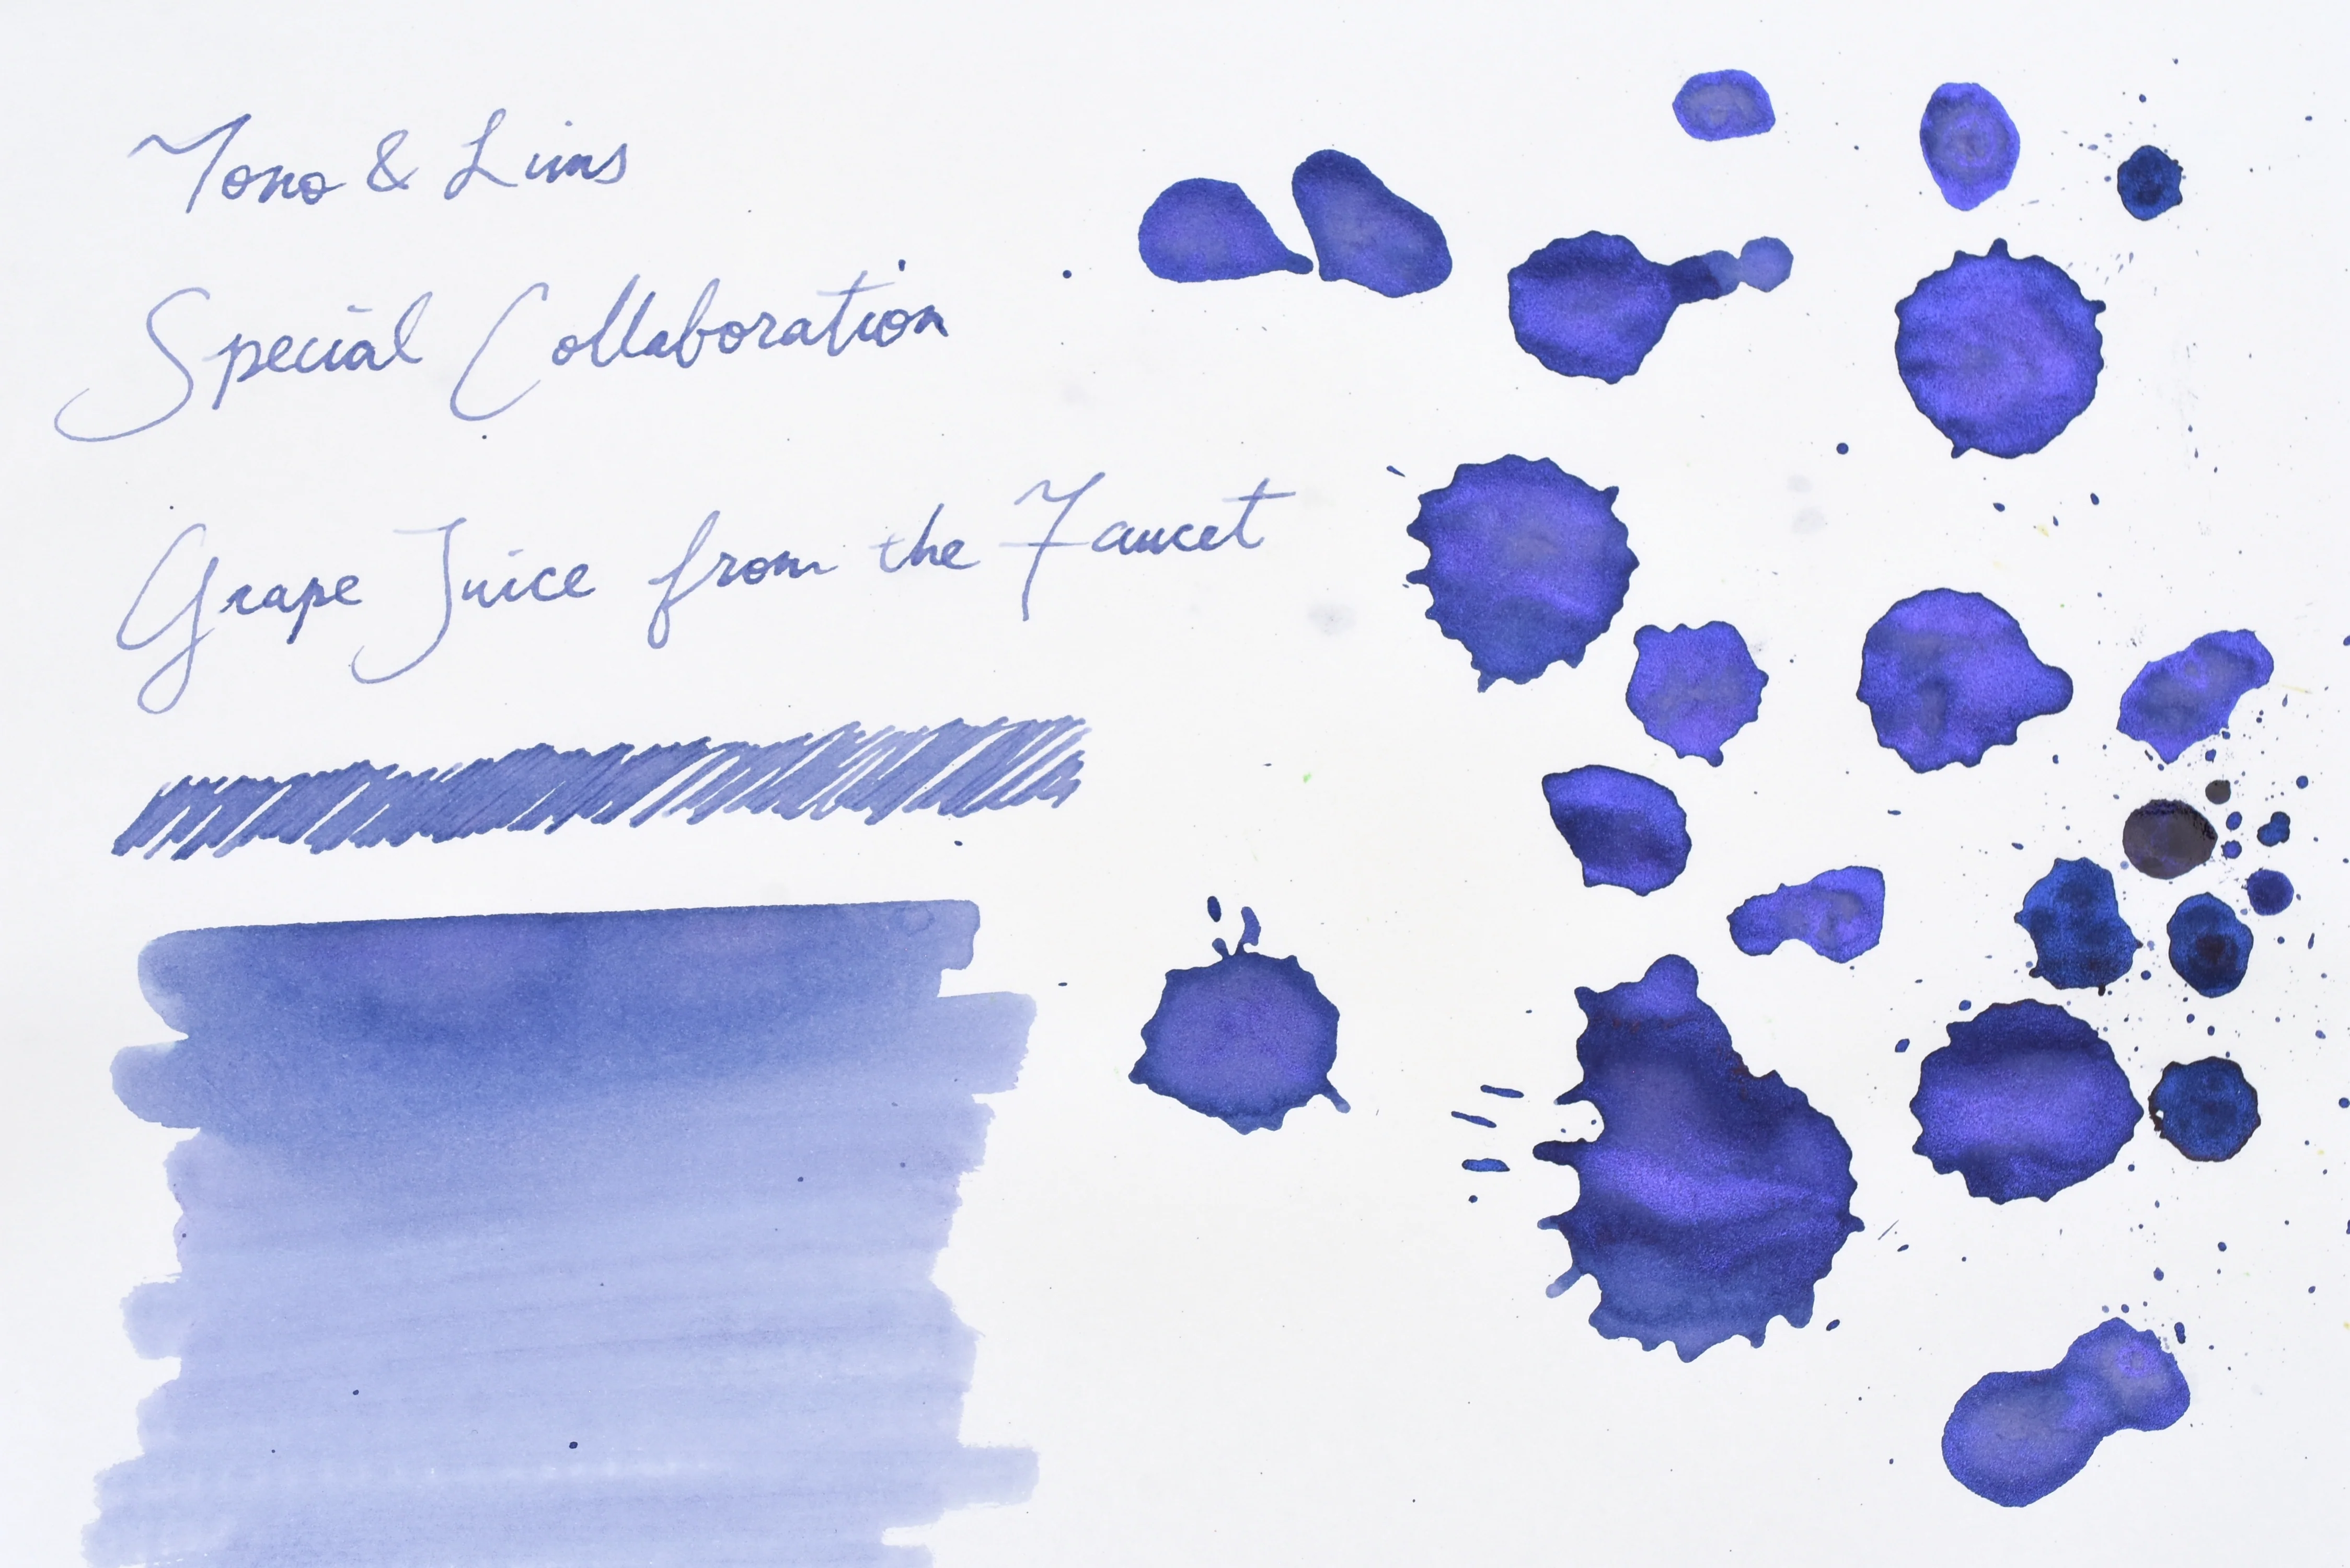 Tono & Lims
Special Collaboration
Grape Juice from the Faucet